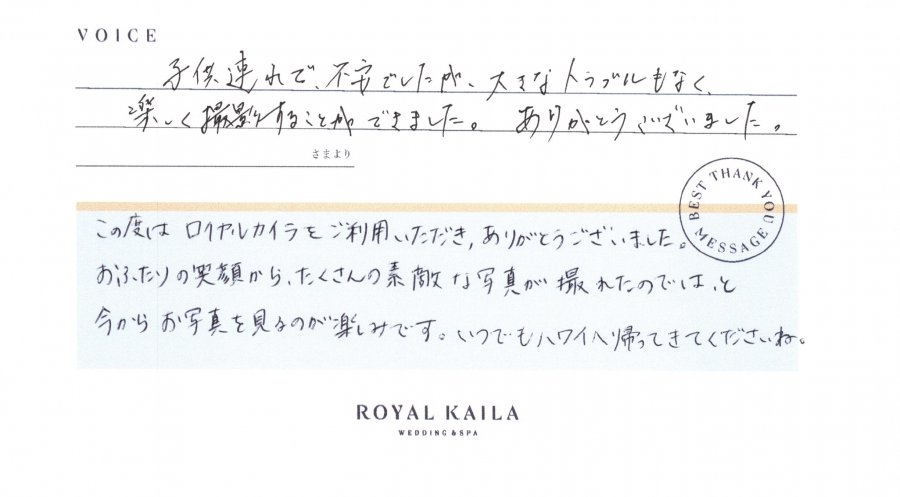 VOICE
子供連れで、不安でしたが、大きなトラブルもなく、
楽しく撮影することができました。 ありがとうございました。
さまより
BEST THANK YOU MESSAGE
この度は ロイヤルカイラをご利用いただき、ありがとうございました。
おふたりの笑顔から、たくさんの素敵な写真が撮れたのでは、と
今からお写真を見るのが楽しみです。いつでもハワイへ帰ってきてくださいね。
ROYAL KAILA
WEDDING & SPA